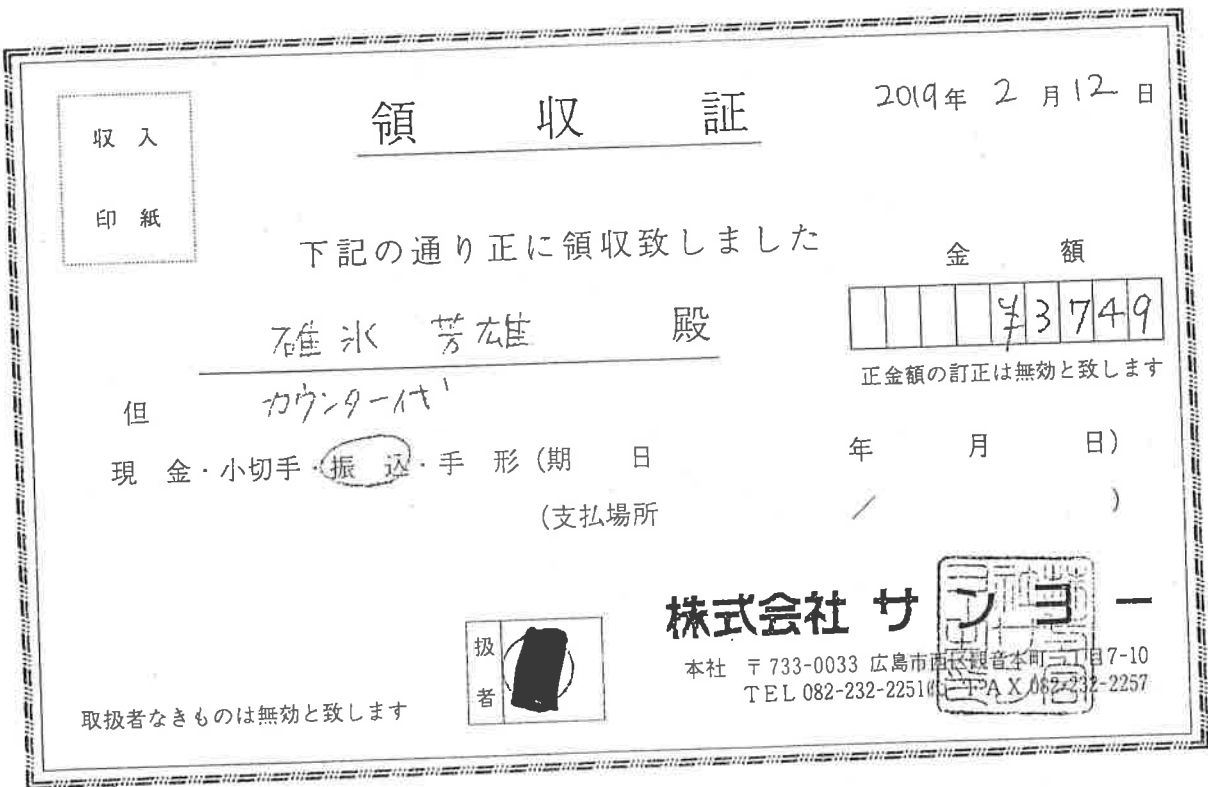 2019年 2 月 12 日
収 入
印 紙
領 収 証
下記の通り正に領収致しました
金 額
碓氷 芳雄 殿
¥3749
正金額の訂正は無効と致します
但 カウンター代
現 金・小切手・振 込・手 形 (期 日 年 月 日)
(支払場所 / )
株式会社 サンヨー
本社 〒733-0033 広島市西区観音本町一丁目7-10
TEL 082-232-2251㈹ FAX 082-232-2257
扱
者
取扱者なきものは無効と致します